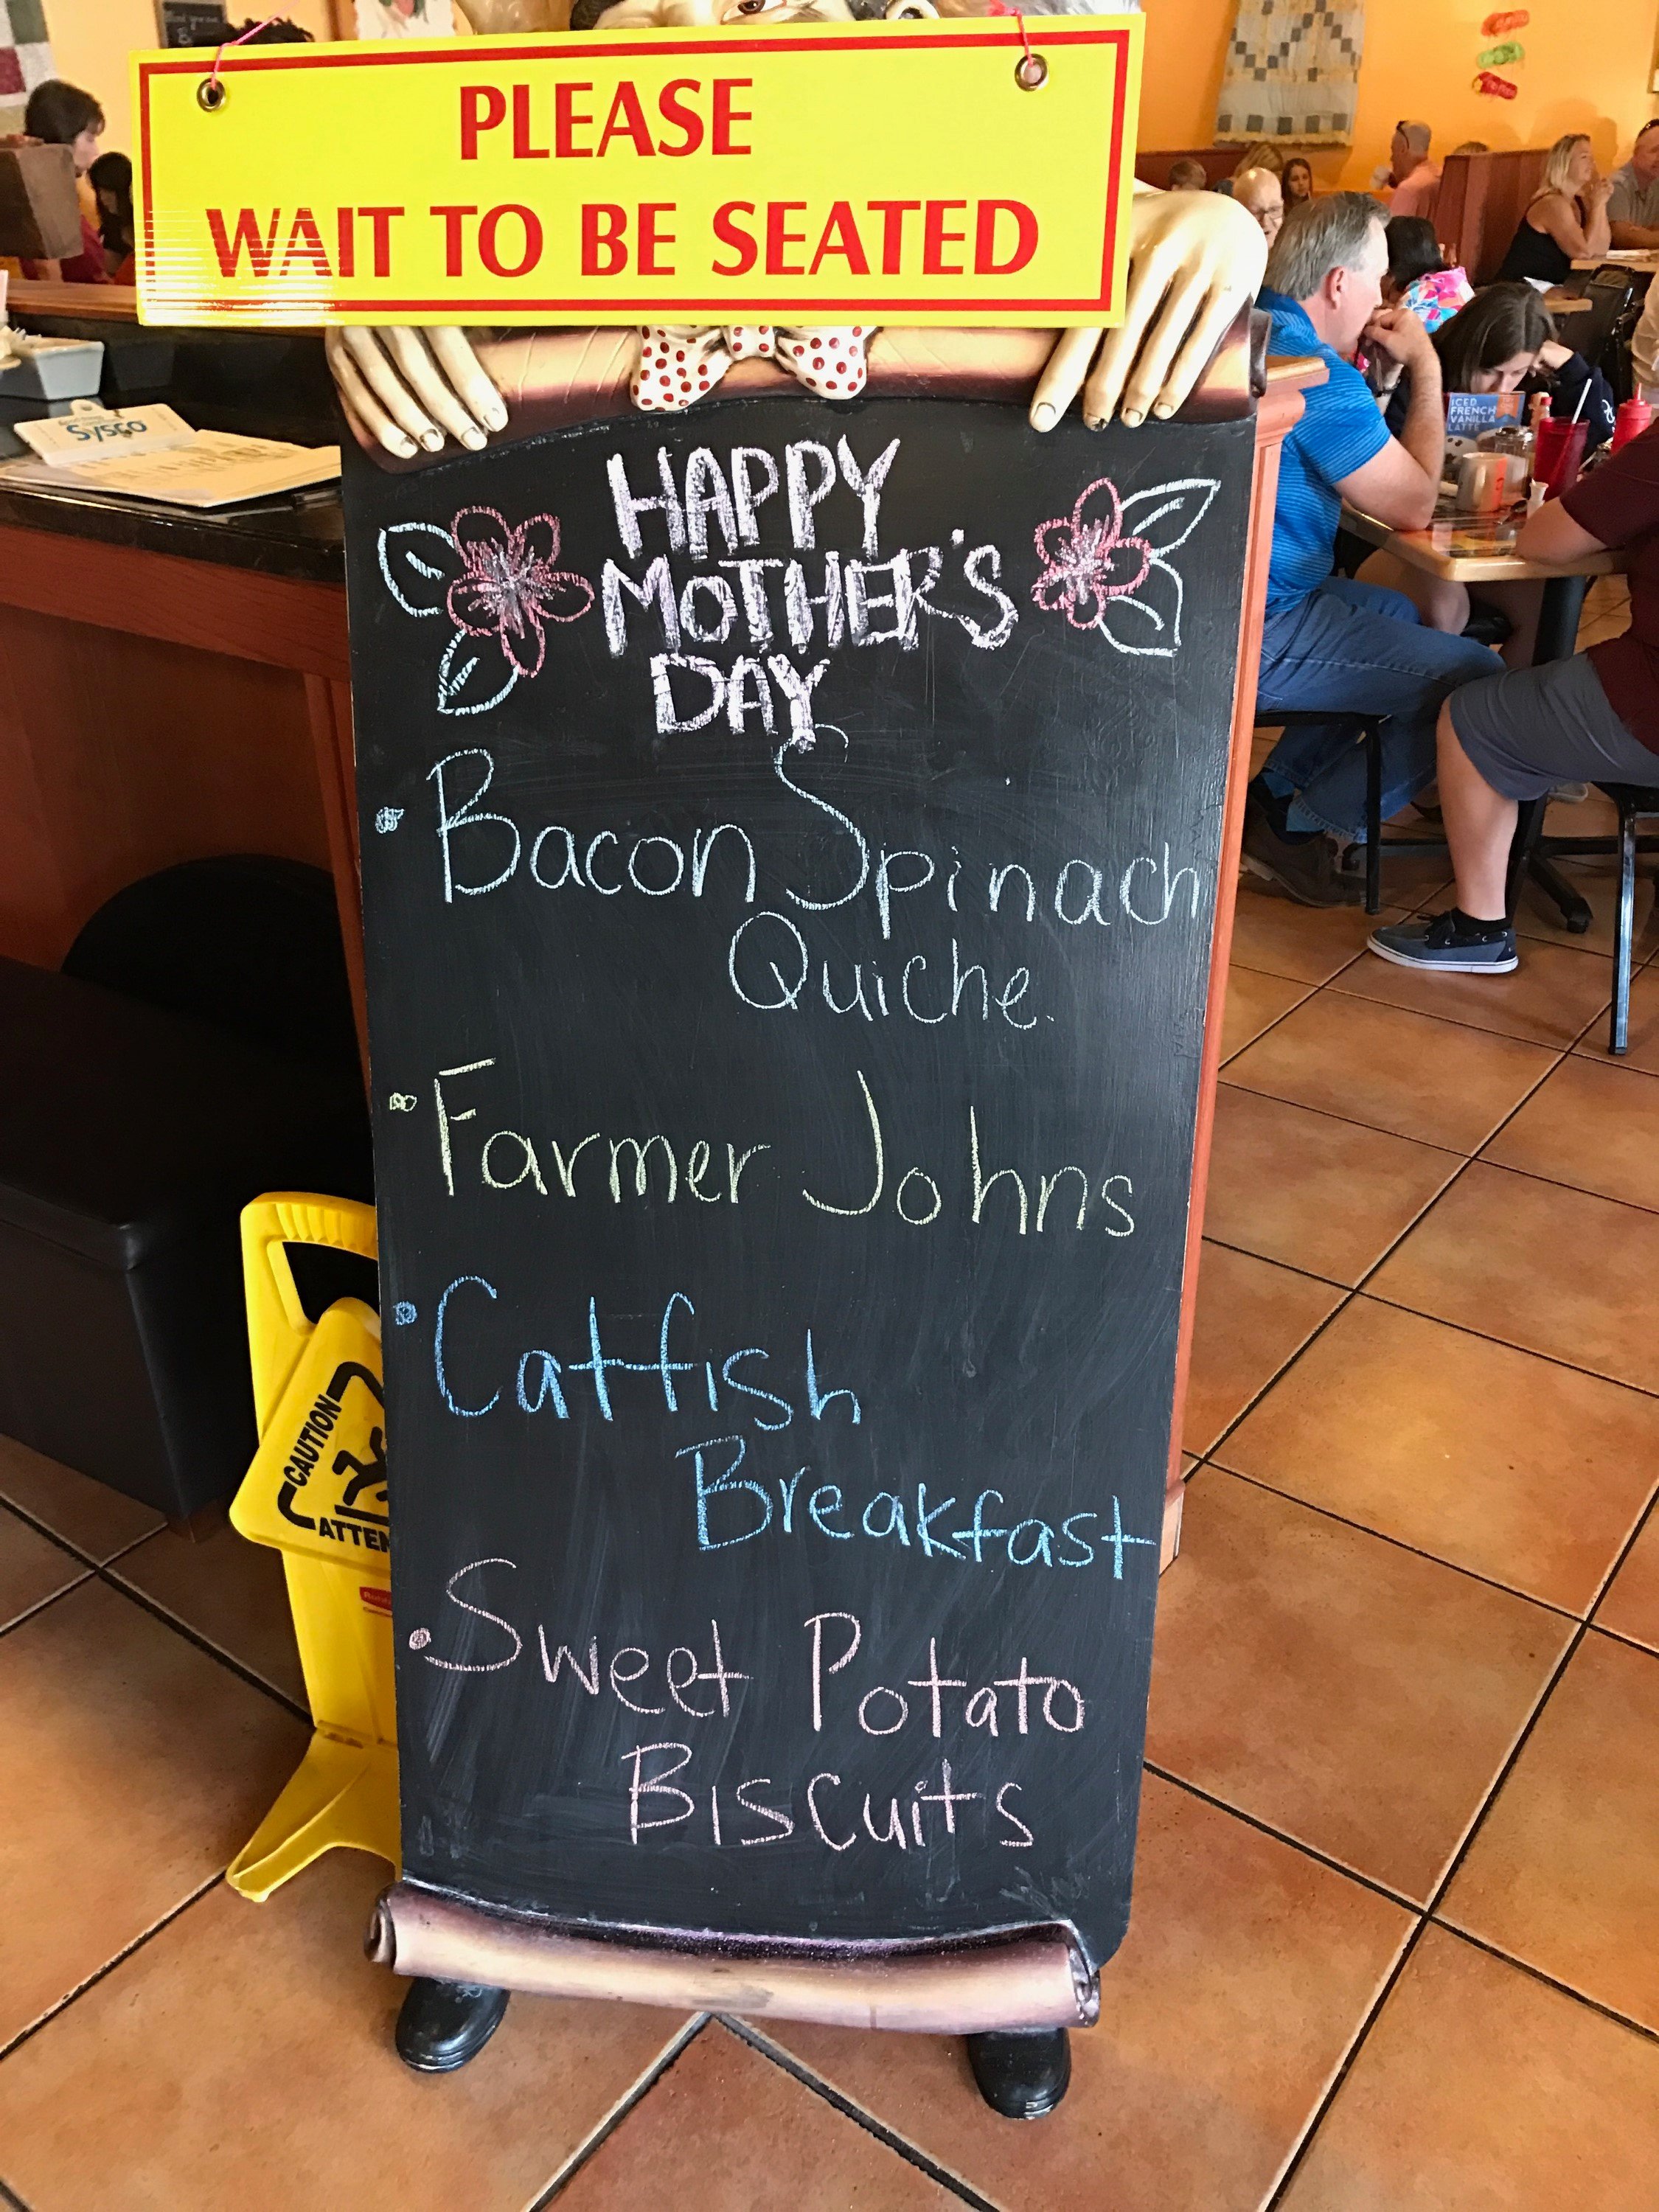 PLEASE
WAIT TO BE SEATED
Sysco
ICED
FRENCH
VANILLA
LATTE
HAPPY
MOTHER'S
DAY
• Bacon Spinach
Quiche
• Farmer Johns
• Catfish
Breakfast
• Sweet Potato
Biscuits
CAUTION
ATTEN